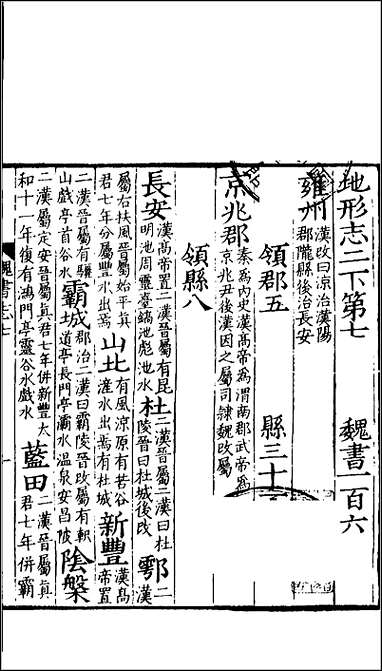 地形志二下第七　魏書一百六
雍州 漢改曰涼治漢陽郡隴縣後治長安
領郡五　縣三十
京兆郡 秦爲內史漢高帝爲渭南郡武帝爲京兆尹後漢因之屬司隸魏改屬
領縣八
長安 漢高帝置二漢晉屬有昆明池周靈臺鎬池彪池水 杜 二漢晉屬二漢曰杜陵晉曰杜城後改 鄠 二漢
屬右扶風晉屬始平眞君七年分屬豐水出焉 山北 有風涼原有苦谷滻水出焉有杜城 新豐 漢高帝置
二漢晉屬有驪山戲亭首谷水 霸城 郡治二漢曰霸陵晉改屬有軹道亭長門亭灞水溫泉安昌陂 陰槃
二漢屬安定晉屬眞君七年併新豐太和十一年復有鴻門亭靈谷水戲水 藍田 二漢晉屬眞君七年併霸
魏書志七